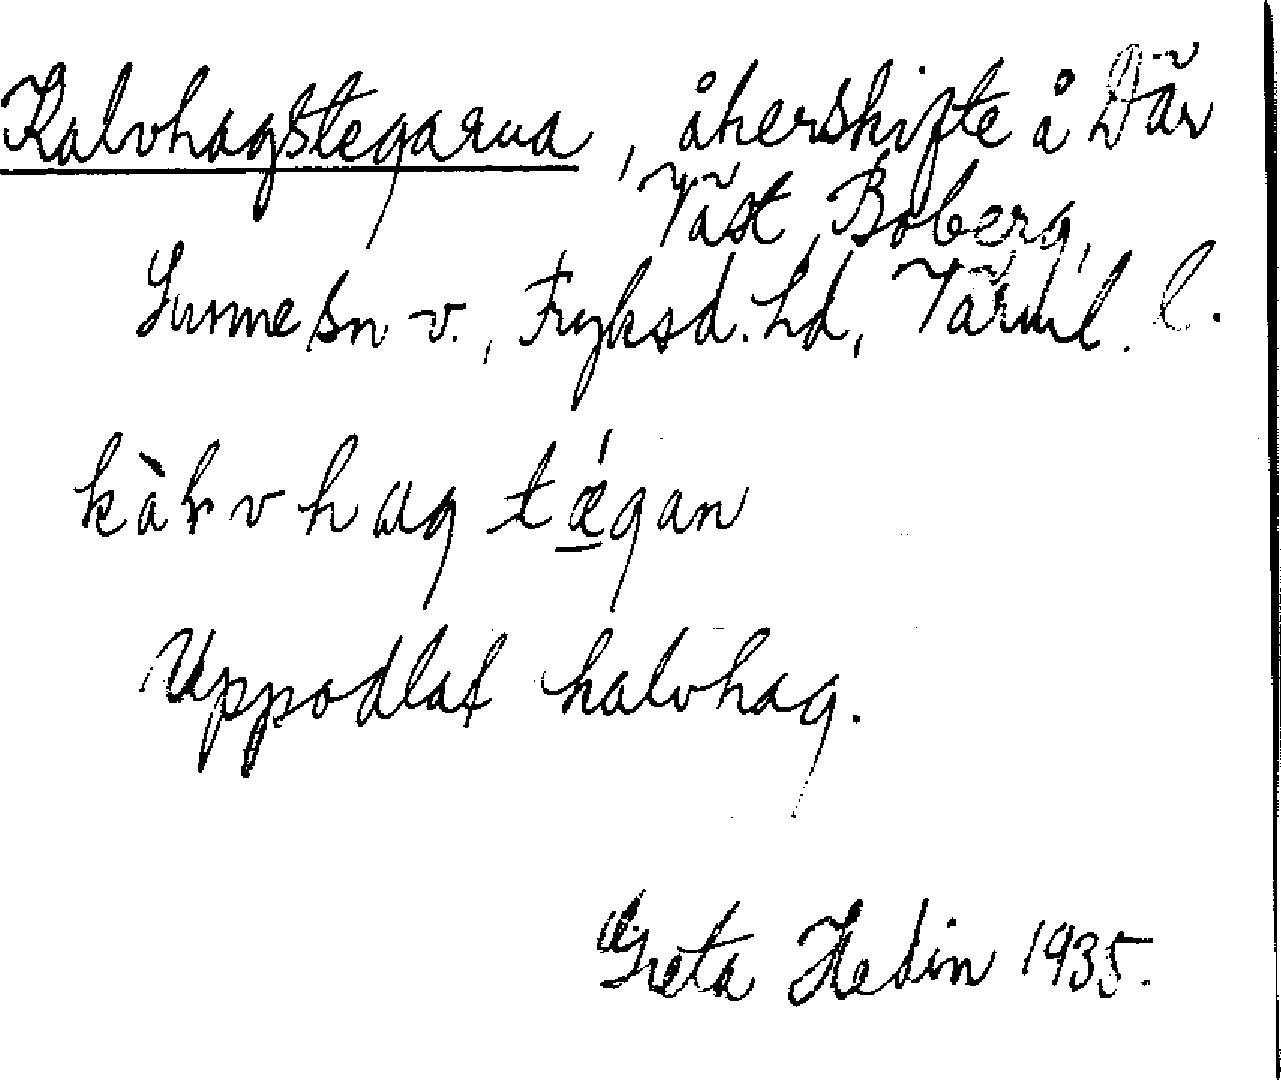 Kalvhagstegarna, åkerskifte å Där
Väst Boberg,
Sunne sn v., Fryksd. hd, Värml. l.
kàlvhag tǽgan
Uppodlat kalvhag.
Greta Hedin 1935.